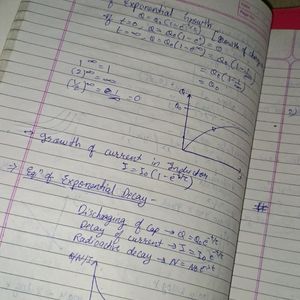 of Exponential Growth [Growth of charge
Q = Q₀(1-e^-t/τ)
If t=0 Q = Q₀(1-e⁰) = 0
t=∞ Q = Q₀(1-e^-∞) = Q₀(1-1/e^∞)
= Q₀(1-1/∞)
= Q₀
1^∞ = 1
(2)^∞ = ∞
(1/2)^∞ = 0
Q
Q₀
t
→ Growth of current in Inductor
I = I₀(1-e^-t/τ)
⇒ Eqⁿ of Exponential Decay -
Discharging of Cap → Q = Q₀e^-t/τ
Decay of current → I = I₀e^-t/τ
Radioactive decay → N = N₀e^-λt
Q/N/I